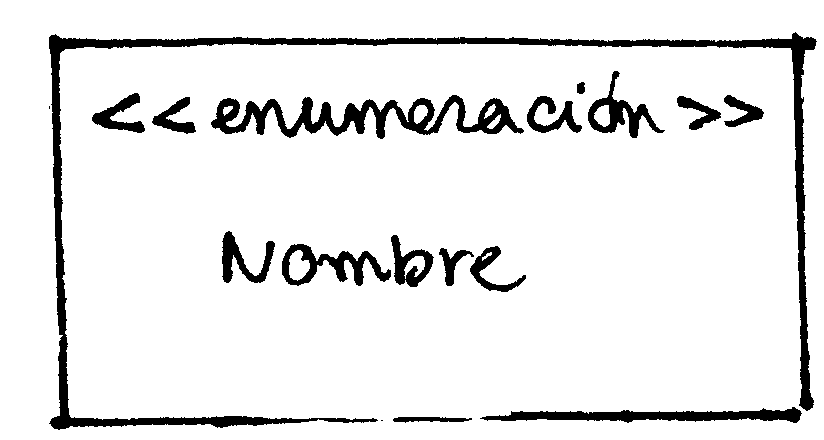 <<enumeración>>
Nombre